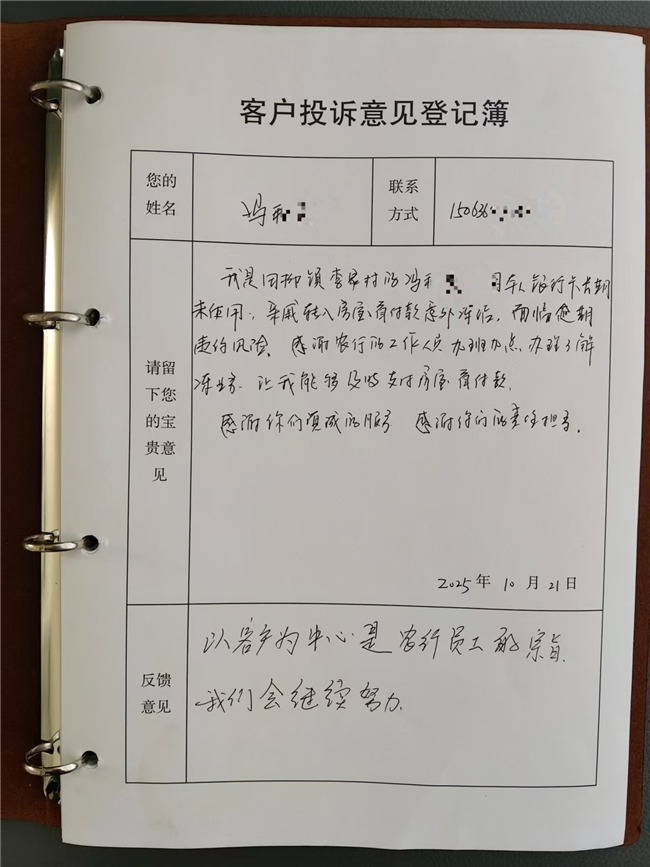 客户投诉意见登记簿
您的
姓名
冯
联系
方式
150636
请留
下您
的宝
贵意
见
我是田柳镇李家村的冯 因本人银行卡长期
未使用，亲戚转入房屋首付款意外冻结，面临逾期
违约风险。感谢农行的工作人员加班加点，办理了解
冻业务，让我能够及时支付房屋首付款。
感谢你们真诚的服务 感谢你们的责任担当。
2025年 10月 21日
反馈
意见
以客户为中心是农行员工的宗旨
我们会继续努力